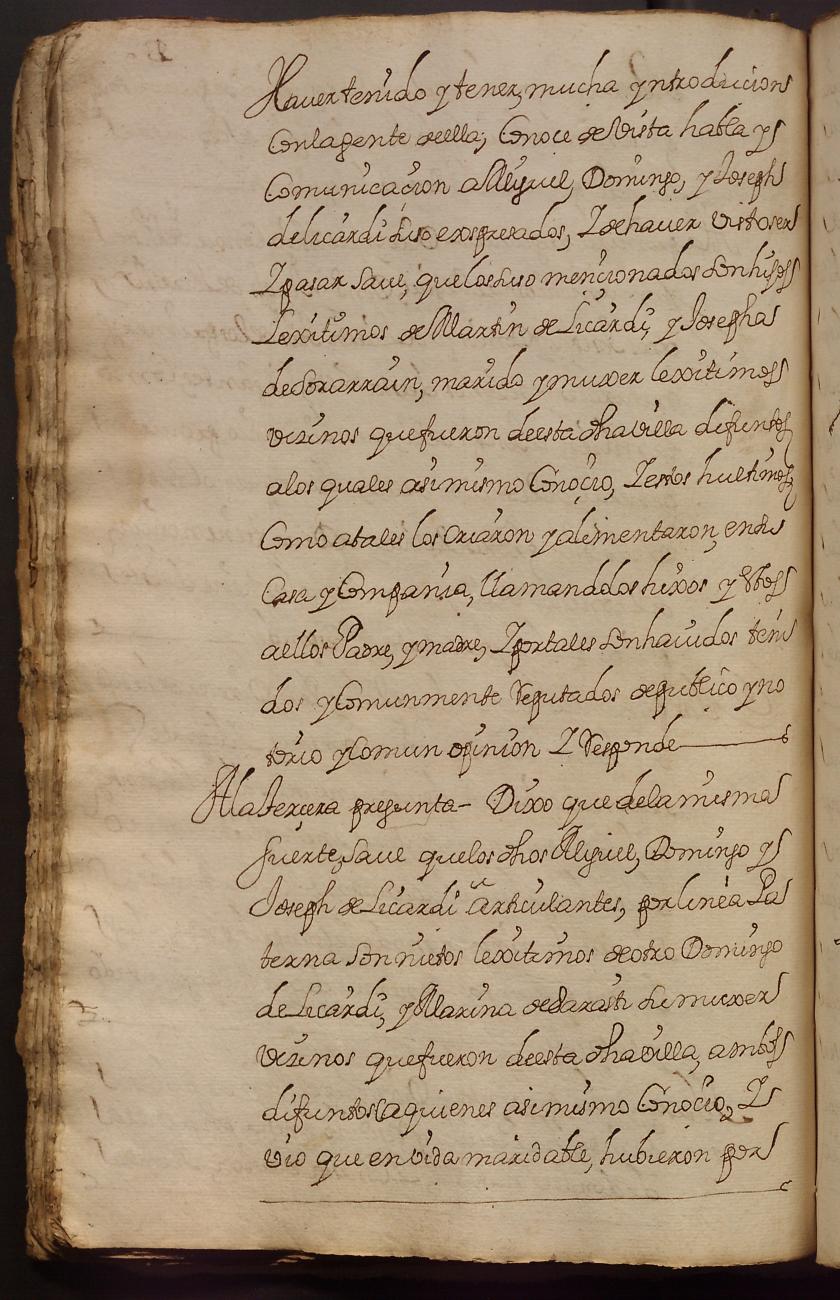 Haver tenido y tener, mucha yntroduccion
Con la gente de ella, Conoce de Vista habla y
Comunicacion a Miguel, Domingo, y Joseph
de Licardi suso expresados, Y de haver visto ser
Y pasar save, que los suso mencionados son hijos
Lexitimos de Martin de Licardi, y Josepha
de Sorarrain, marido y muxer lexitimos
vezinos que fueron de esta dha villa difuntos
a los quales asimismo Conocio, Y estos hultimos
Como a tales los criaron y alimentaron, en su
Casa y Compañia, llamandolos hixos y estos
a ellos Padre, y madre, Y por tales son havidos teni
dos y Comunmente Reputados de publico y no
torio y Comun opinion Y Responde
A la tercera pregunta - Dixo que de la misma
suerte, save que los dhos Miguel, Domingo y
Joseph de Licardi articulantes, por linea Pa
terna son nietos lexitimos de otro Domingo
de Licardi, y Marina de Sarasti su muxer
vezinos que fueron de esta dha villa, ambos
difuntos a quienes asimismo Conocio, Y
vio que en vida maridable, hubieron por